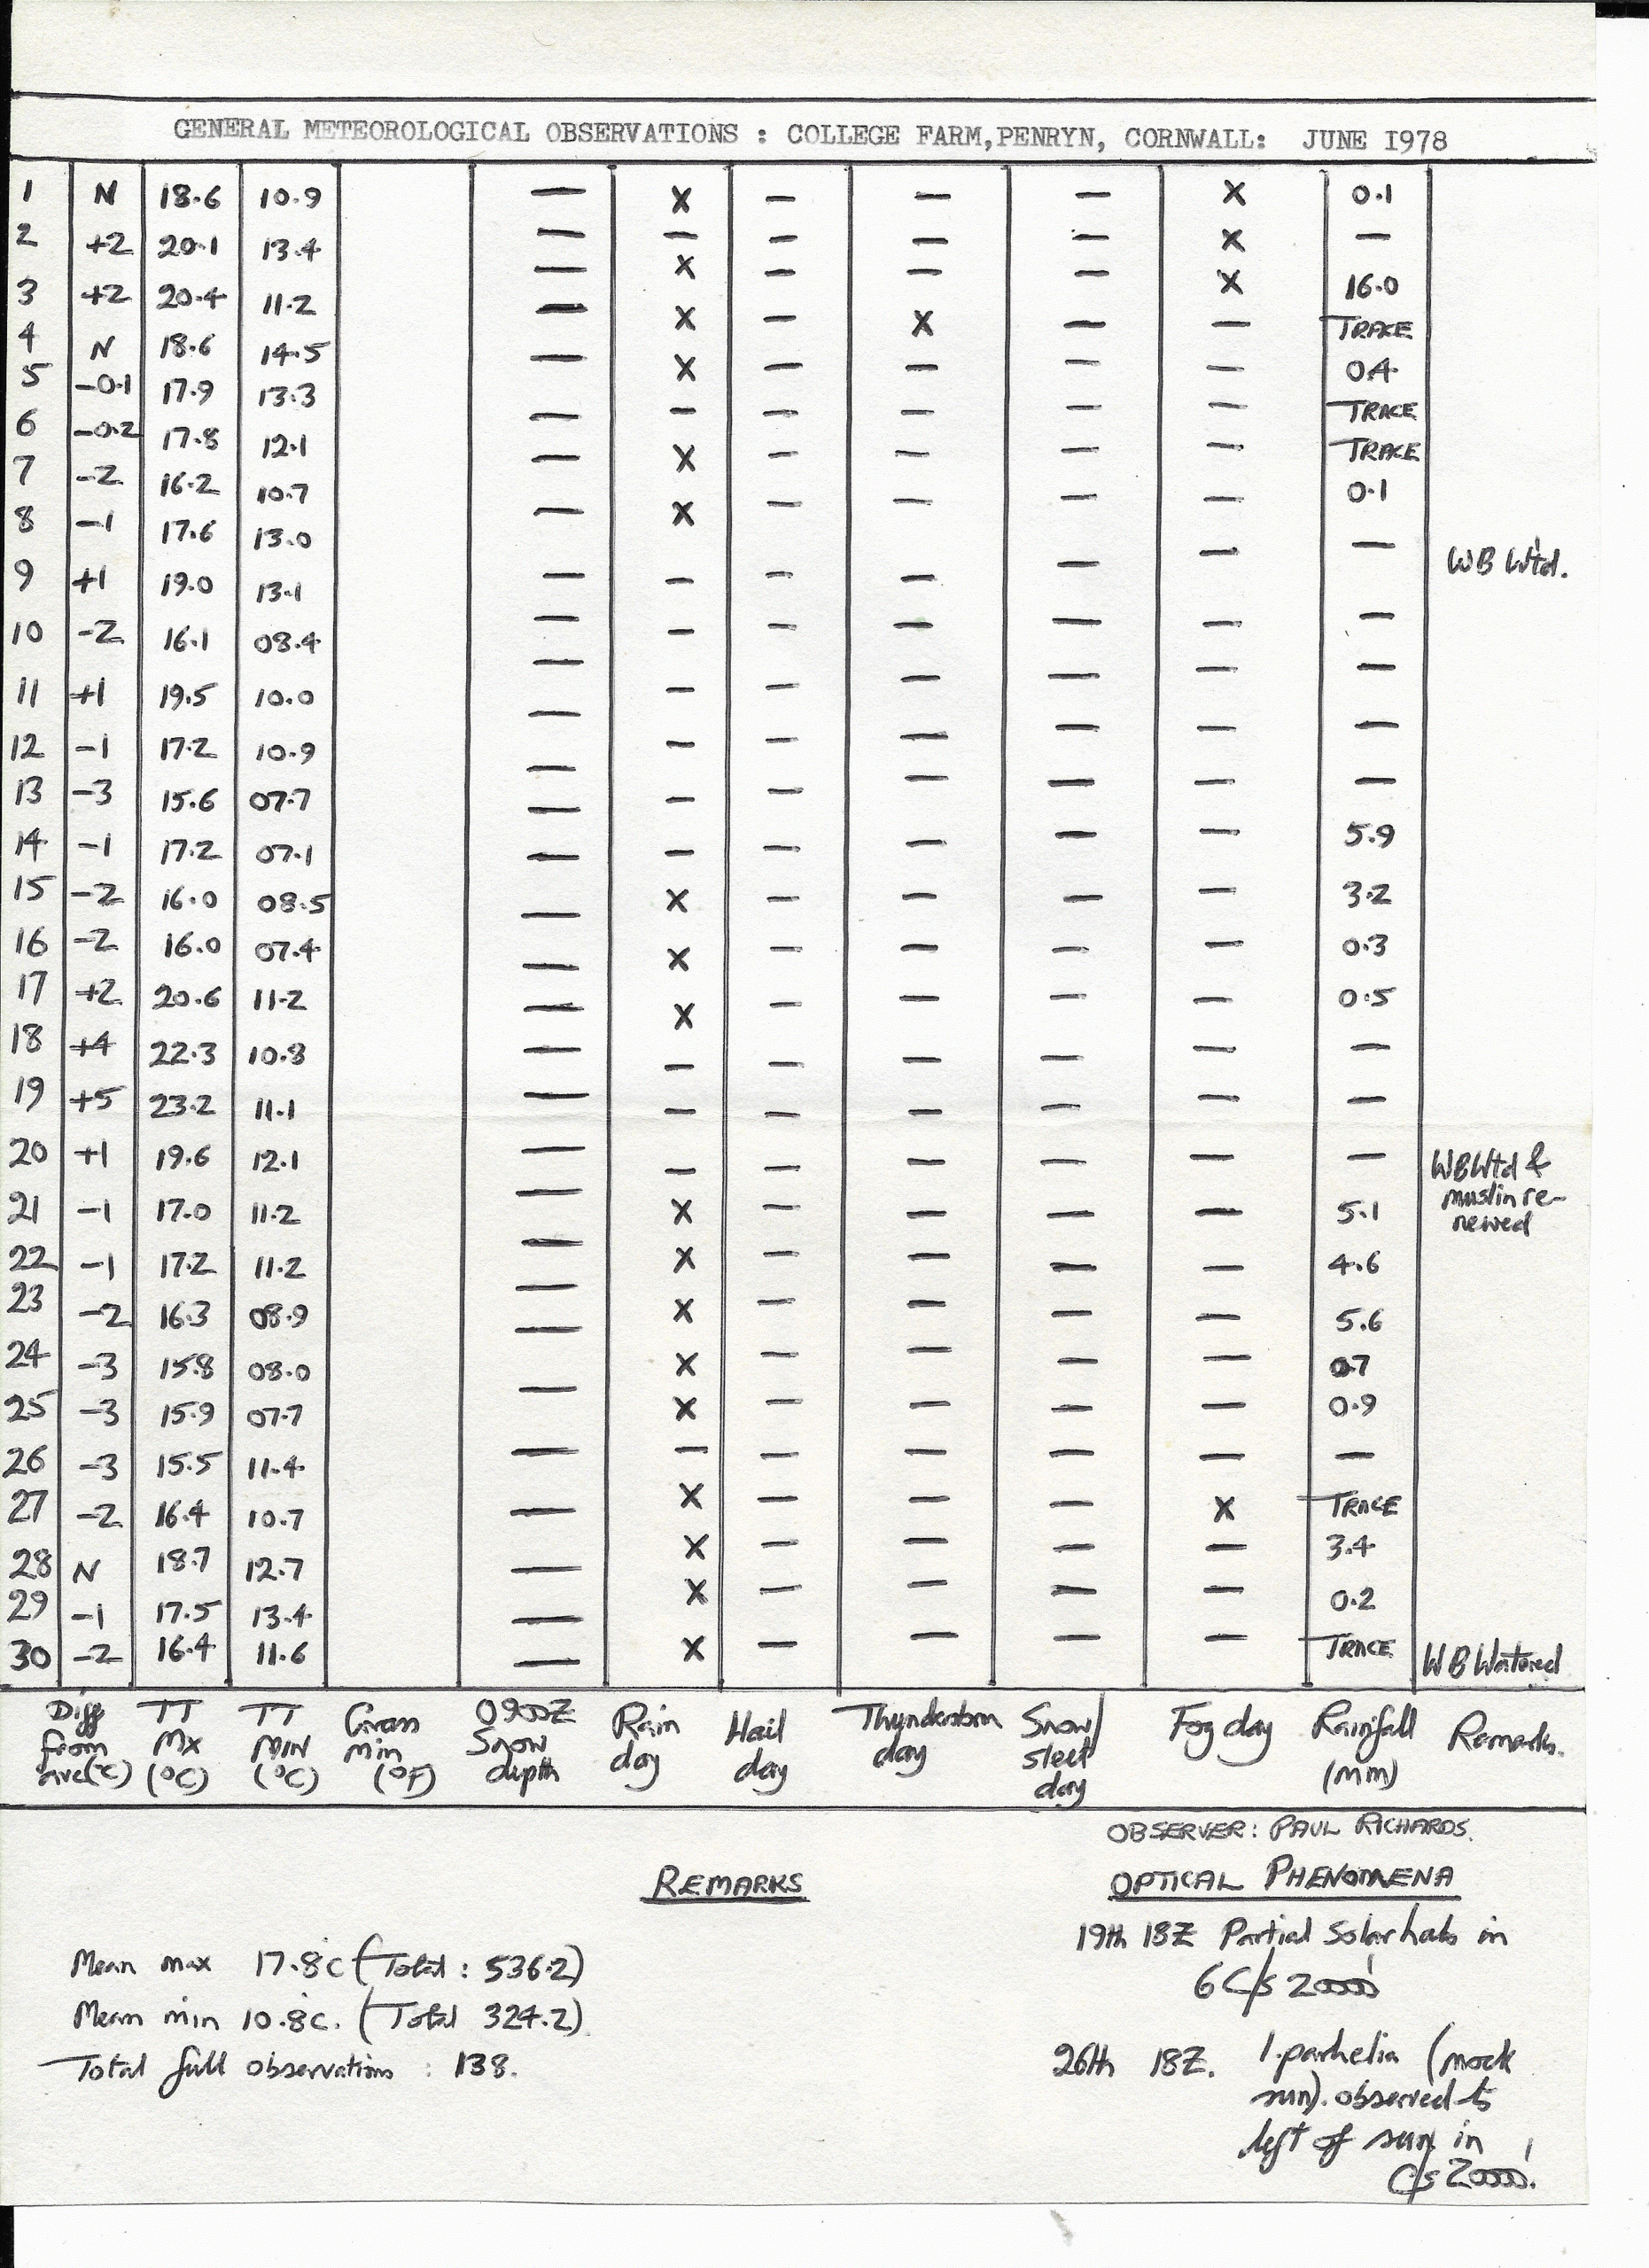 GENERAL METEOROLOGICAL OBSERVATIONS : COLLEGE FARM, PENRYN, CORNWALL: JUNE 1978
1 N 18.6 10.9 — X — — — X 0.1
2 +2 20.1 13.4 — — — — — X —
3 +2 20.4 11.2 — X — — — X 16.0
4 N 18.6 14.5 — X — X — — TRACE
5 -0.1 17.9 13.3 — X — — — — 0.4
6 -0.2 17.8 12.1 — — — — — — TRACE
7 -2 16.2 10.7 — X — — — — TRACE
8 -1 17.6 13.0 — X — — — — 0.1
9 +1 19.0 13.1 — — — — — — — WB Wtd.
10 -2 16.1 08.4 — — — — — — —
11 +1 19.5 10.0 — — — — — — —
12 -1 17.2 10.9 — — — — — — —
13 -3 15.6 07.7 — — — — — — —
14 -1 17.2 07.1 — — — — — — 5.9
15 -2 16.0 08.5 — X — — — — 3.2
16 -2 16.0 07.4 — X — — — — 0.3
17 +2 20.6 11.2 — X — — — — 0.5
18 +4 22.3 10.8 — — — — — — —
19 +5 23.2 11.1 — — — — — — —
20 +1 19.6 12.1 — — — — — — — WB Wtd &
muslin re-
newed
21 -1 17.0 11.2 — X — — — — 5.1
22 -1 17.2 11.2 — X — — — — 4.6
23 -2 16.3 08.9 — X — — — — 5.6
24 -3 15.8 08.0 — X — — — — 0.7
25 -3 15.9 07.7 — X — — — — 0.9
26 -3 15.5 11.4 — — — — — — —
27 -2 16.4 10.7 — X — — — X TRACE
28 N 18.7 12.7 — X — — — — 3.4
29 -1 17.5 13.4 — X — — — — 0.2
30 -2 16.4 11.6 — X — — — — TRACE WB Watered
Diff from ave(°C) TT Mx (°C) TT MIN (°C) Grass min (°F) 0900Z Snow depth Rain day Hail day Thunderstorm day Snow/ sleet day Fog day Rainfall (mm) Remarks.
OBSERVER: PAUL RICHARDS.
REMARKS
Mean max 17.8c (Total: 536.2)
Mean min 10.8c. (Total 324.2)
Total full observations : 138.
OPTICAL PHENOMENA
19th 18Z Partial Solar halo in
6 C/s 20000'
26th 18Z. 1. parhelia (mock
sun). observed to
left of sun in
C/s 20000'.